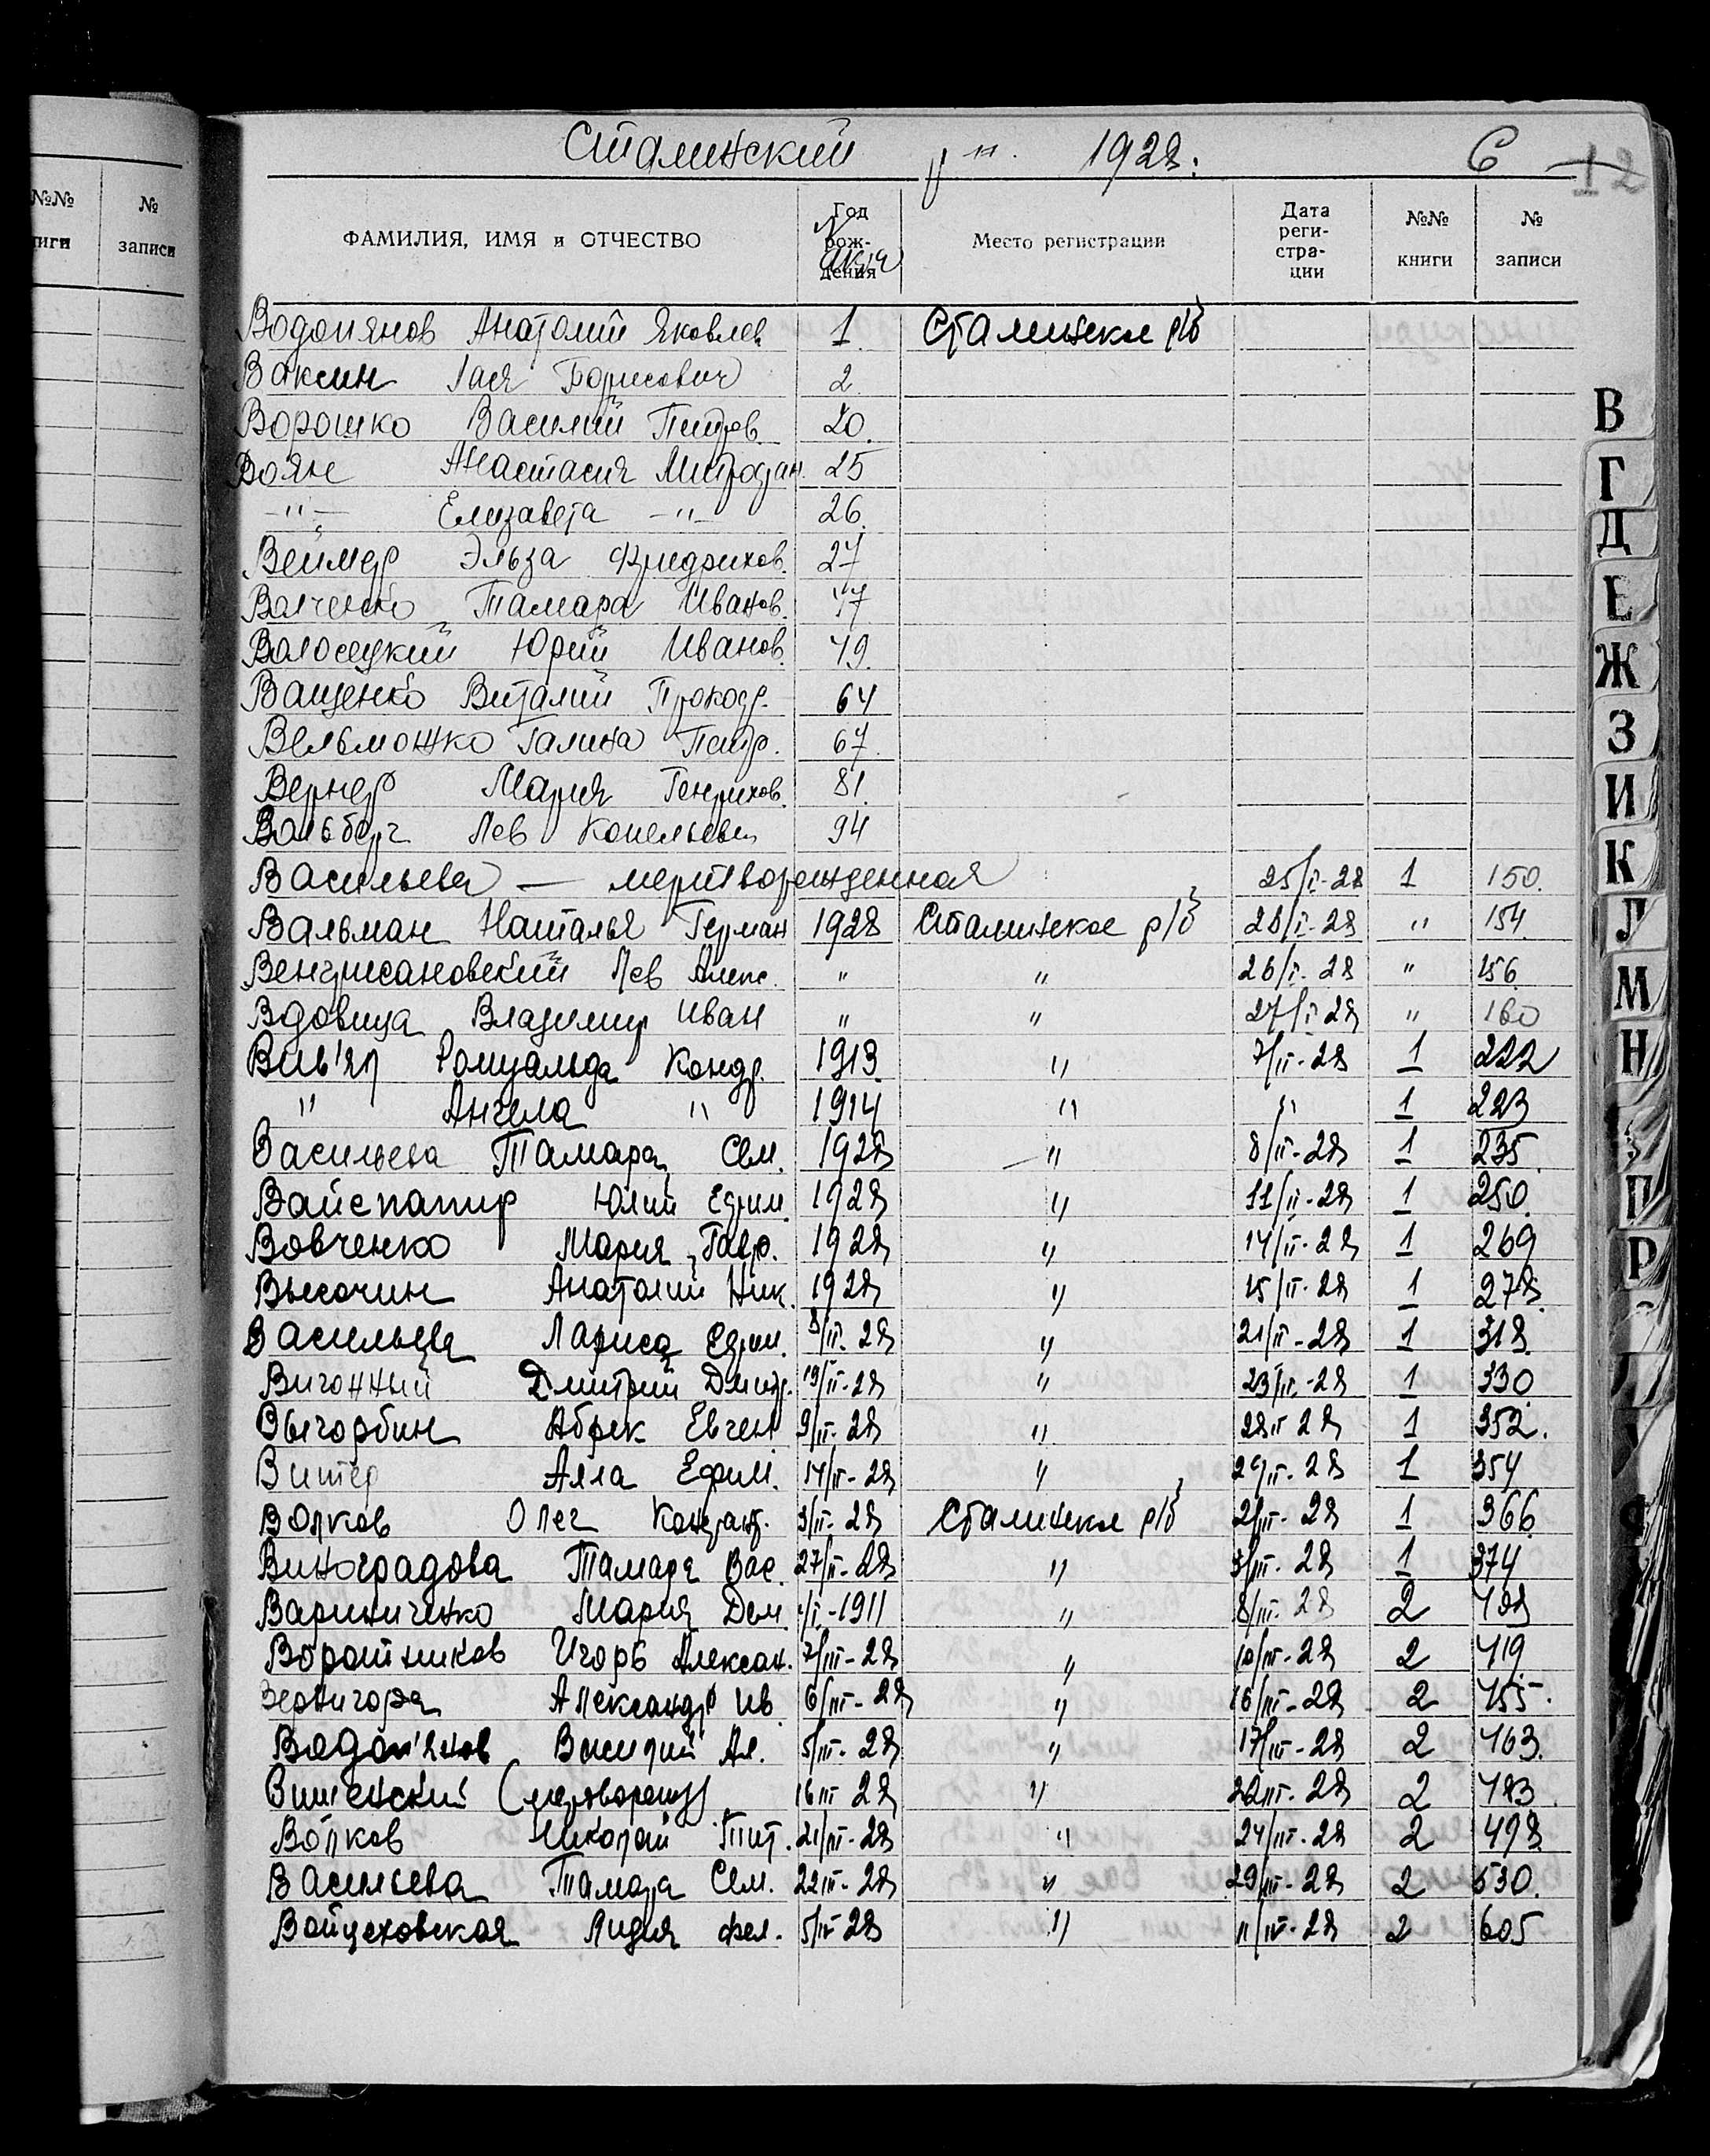 Сталинский 1928. С 12
№№ №
записи
ФАМИЛИЯ, ИМЯ и ОТЧЕСТВО Год рож-дения № акта Место регистрации Дата реги-стра-ции №№ книги № записи
Водопянов Анатолий Яковлев 1 Сталинское р/б
Ваксин Борисович 2
Ворошко Василий Петров. 20.
Воян Анастасия Митрофан. 25
-"- Елизавета -"- 26.
Веймер Эльза Фридрихов. 27
Тамара Иванов. 47
Волосецкий Юрий Иванов. 49.
Ващенко Виталий Прокоф. 64
Вельможко Галина Петр. 67.
Вернер Мария Генрихов. 81.
Вальберг Лев Копельевич 94
Васильева — мертворожденная 25/I-28 1 150.
Вальман Наталья Герман 1928 Сталинское р/б 28/I-28 " 154
Лев Алекс. " " 26/I-28 " 156.
Вдовица Владимир Иван " " 27/I 28 " 160
Ромуальда Конд. 1913. " 7/II-28 1 222
" Ангела " 1914 " " 1 223
Васильева Тамара Сем. 1928 " 8/II-28 1 235.
Вайспапир Юлий Ефим. 1928 " 11/II-28 1 250.
Вовченко Мария Гавр. 1928 " 14/II-28 1 269
Высочин Анатолий Ник. 1928 " 15/II-28 1 278.
Васильева Лариса Ефим. 8/II-28 " 21/II-28 1 318.
Вигонный Дмитрий Дмитр. 19/II-28 " 23/II-28 1 330
Выгорбин Абрек Евген 9/II-28 " 28 II 28 1 352.
Витер Алла Ефим. 14/II-28 " 29/II-28 1 354
Волков Олег Кондрат. 3/II-28 Сталинское р/б 2/III-28 1 366.
Виноградова Тамара Вас. 27/II-28 " 3/III-28 1 374
Вариниченко Мария Дем. -1911 " 8/III-28 2
Воротников Игорь Алексан. 7/III-28 " 10/III-28 2 419
Вернигора Александр Ив. 6/III-28 " 16/III-28 2 455.
Водоп'янов Ал. 5/III-28 " 17/III-28 2 463.
Вишенский (мертворожд) 16 III 28 " 22 III-28 2 483
Волков Николай Тит. 21/III-28 " 24/III-28 2 498.
Васильева Тамара Сем. 22 III-28 " 29/III-28 2 530.
Войцеховская Лидия Фел. 5/IV 28 " 11/IV-28 2 605
В
Г
Д
Е
Ж
З
И
К
Л
М
Н
П
Р